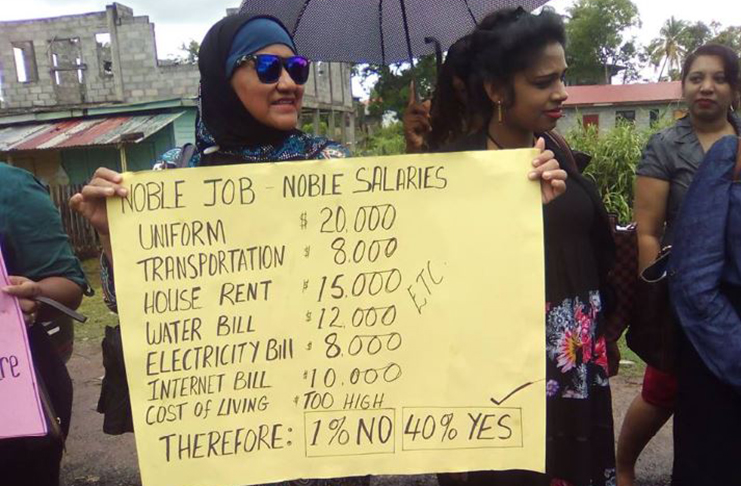 NOBLE JOB - NOBLE SALARIES
UNIFORM $ 20.000
TRANSPORTATION $ 8.000
HOUSE RENT $ 15.000
WATER BILL $ 12.000
ELECTRICITY Bill $ 8.000
INTERNET BILL $ 10.000
ETC.
COST OF LIVING $ TOO HIGH
THEREFORE: 1% NO 40% YES
re